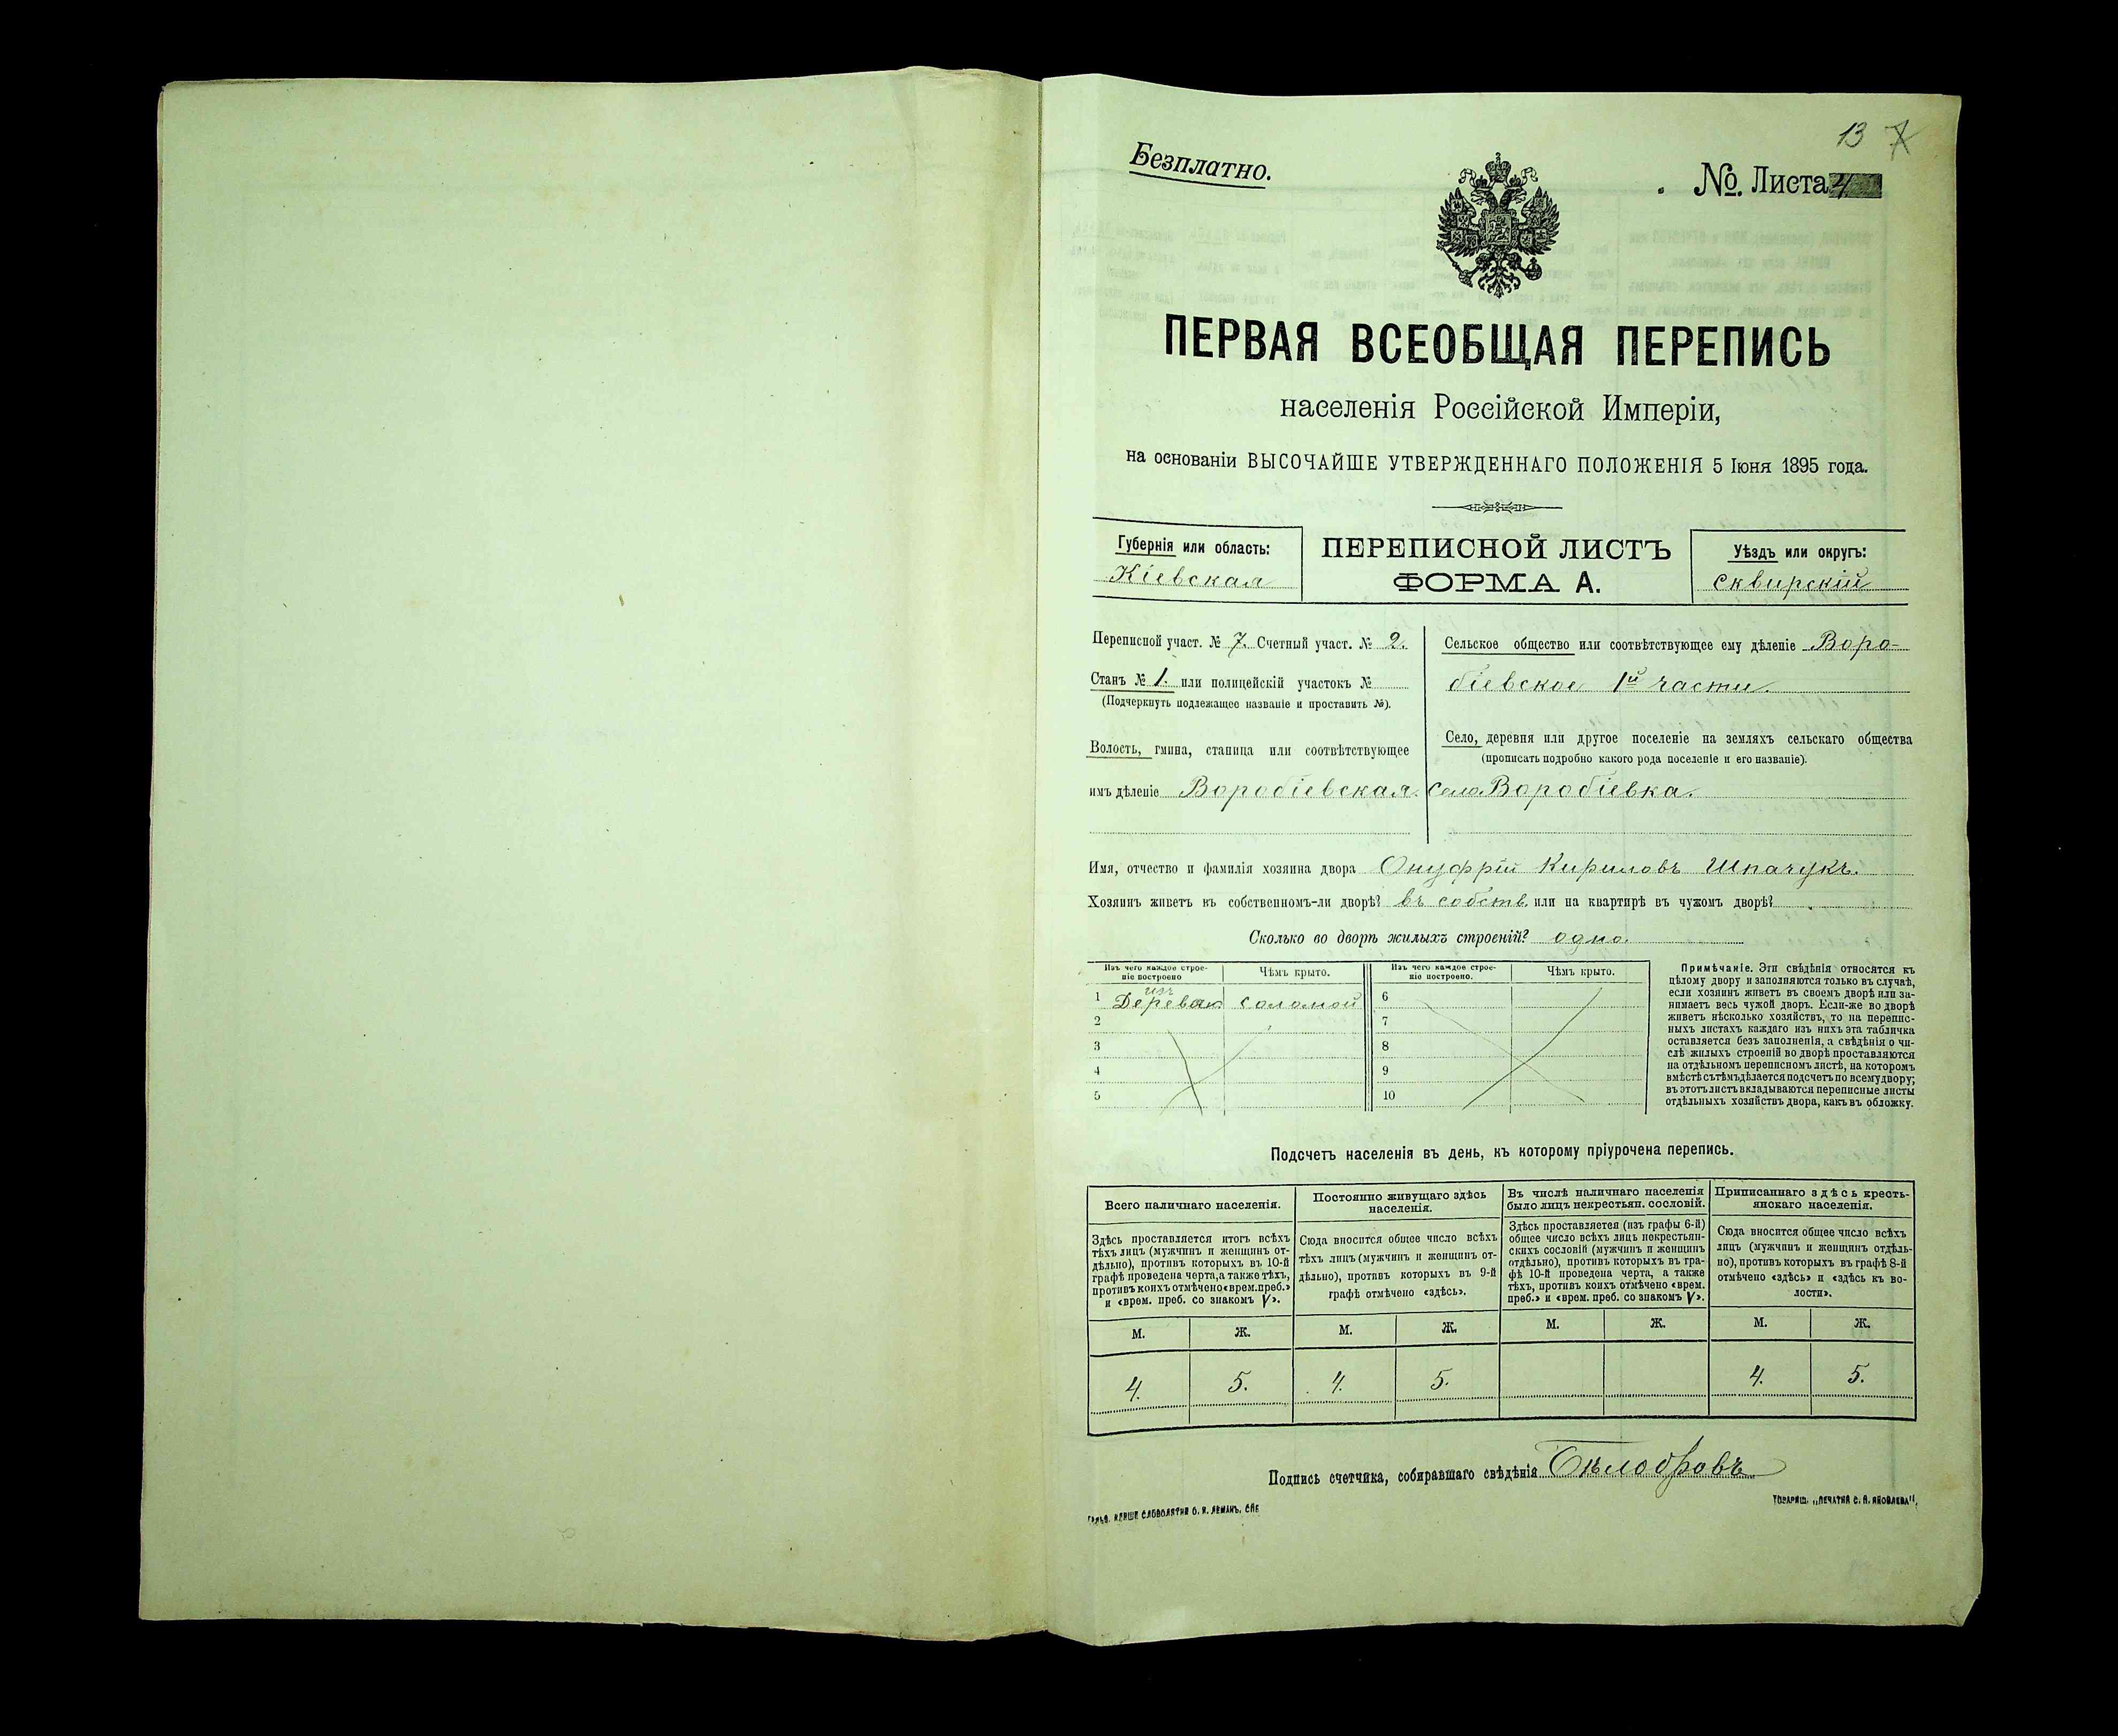 13 7
Безплатно.
№. Листа 4
ПЕРВАЯ ВСЕОБЩАЯ ПЕРЕПИСЬ
населенія Россійской Имперіи,
на основаніи ВЫСОЧАЙШЕ УТВЕРЖДЕННАГО ПОЛОЖЕНІЯ 5 Іюня 1895 года.
Губернія или область:
Кіевская
ПЕРЕПИСНОЙ ЛИСТЪ
ФОРМА А.
Уѣздъ или округъ:
Сквирскій
Переписной участ. № 7. Счетный участ. № 2.
Станъ № 1. или полицейскій участокъ №
(Подчеркнуть подлежащее названіе и проставить №).
Волость, гмина, станица или соотвѣтствующее
имъ дѣленіе Воробіевская.
Сельское общество или соотвѣтствующее ему дѣленіе Воро-
біевское 1й части.
Село, деревня или другое поселеніе на земляхъ сельскаго общества
(прописать подробно какого рода поселеніе и его названіе).
Село Воробіевка.
Имя, отчество и фамилія хозяина двора Онуфрій Кириловъ Шпачукъ.
Хозяинъ живетъ въ собственномъ-ли дворѣ? въ собств. или на квартирѣ въ чужомъ дворѣ?
Сколько во дворѣ жилыхъ строеній? одно.
Изъ чего каждое строе-
ніе построено
Чѣмъ крыто.
Изъ чего каждое строе-
ніе построено.
Чѣмъ крыто.
1 изъ Дерева соломой
2
3
4
5
6
7
8
9
10
Примѣчаніе. Эти свѣдѣнія относятся къ
цѣлому двору и заполняются только въ случаѣ,
если хозяинъ живетъ въ своемъ дворѣ или за-
нимаетъ весь чужой дворъ. Если-же во дворѣ
живетъ нѣсколько хозяйствъ, то на перепис-
ныхъ листахъ каждаго изъ нихъ эта табличка
оставляется безъ заполненія, а свѣдѣнія о чи-
слѣ жилыхъ строеній во дворѣ проставляются
на отдѣльномъ переписномъ листѣ, на которомъ
вмѣстѣ съ тѣмъ дѣлается подсчетъ по всему двору;
въ этотъ листъ вкладываются переписные листы
отдѣльныхъ хозяйствъ двора, какъ въ обложку.
Подсчетъ населенія въ день, къ которому пріурочена перепись.
Всего наличнаго населенія.
Здѣсь проставляется итогъ всѣхъ
тѣхъ лицъ (мужчинъ и женщинъ от-
дѣльно), противъ которыхъ въ 10-й
графѣ проведена черта, а также тѣхъ,
противъ коихъ отмѣчено «врем. преб.»
и «врем. преб. со знакомъ V».
Постоянно живущаго здѣсь
населенія.
Сюда вносится общее число всѣхъ
тѣхъ лицъ (мужчинъ и женщинъ от-
дѣльно), противъ которыхъ въ 9-й
графѣ отмѣчено «здѣсь».
Въ числѣ наличнаго населенія
было лицъ некрестьян. сословій.
Здѣсь проставляется (изъ графы 6-й)
общее число всѣхъ лицъ некрестьян-
скихъ сословій (мужчинъ и женщинъ
отдѣльно), противъ которыхъ въ гра-
фѣ 10-й проведена черта, а также
тѣхъ, противъ коихъ отмѣчено «врем.
преб.» и «врем. преб. со знакомъ V».
Приписаннаго здѣсь кресть-
янскаго населенія.
Сюда вносится общее число всѣхъ
лицъ (мужчинъ и женщинъ отдѣль-
но), противъ которыхъ въ графѣ 8-й
отмѣчено «здѣсь» и «здѣсь къ во-
лости».
М. Ж. М. Ж. М. Ж. М. Ж.
4. 5. 4. 5. 4. 5.
Подпись счетчика, собиравшаго свѣдѣнія Бѣлобровъ
КЛИШЕ СЛОВОЛИТНИ О. И. ЛЕМАНЪ, СПБ
ТОВАРИЩ. „ПЕЧАТНЯ С. П. ЯКОВЛЕВА".